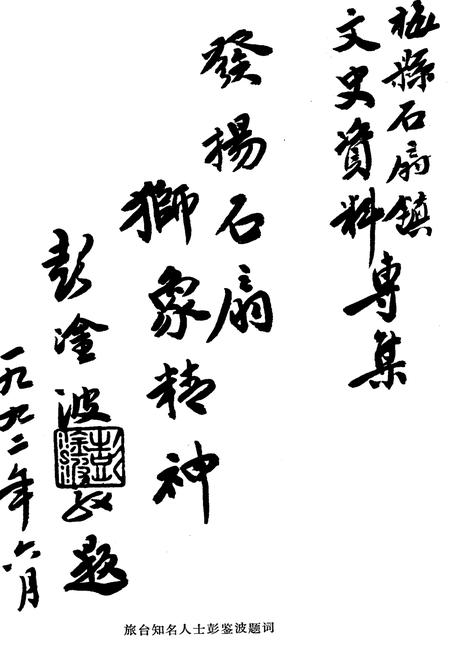 梅縣石扇鎮
文史資料專集
發揚石扇
獅象精神
彭淦波敬題
一九九二年六月
旅台知名人士彭鉴波题词